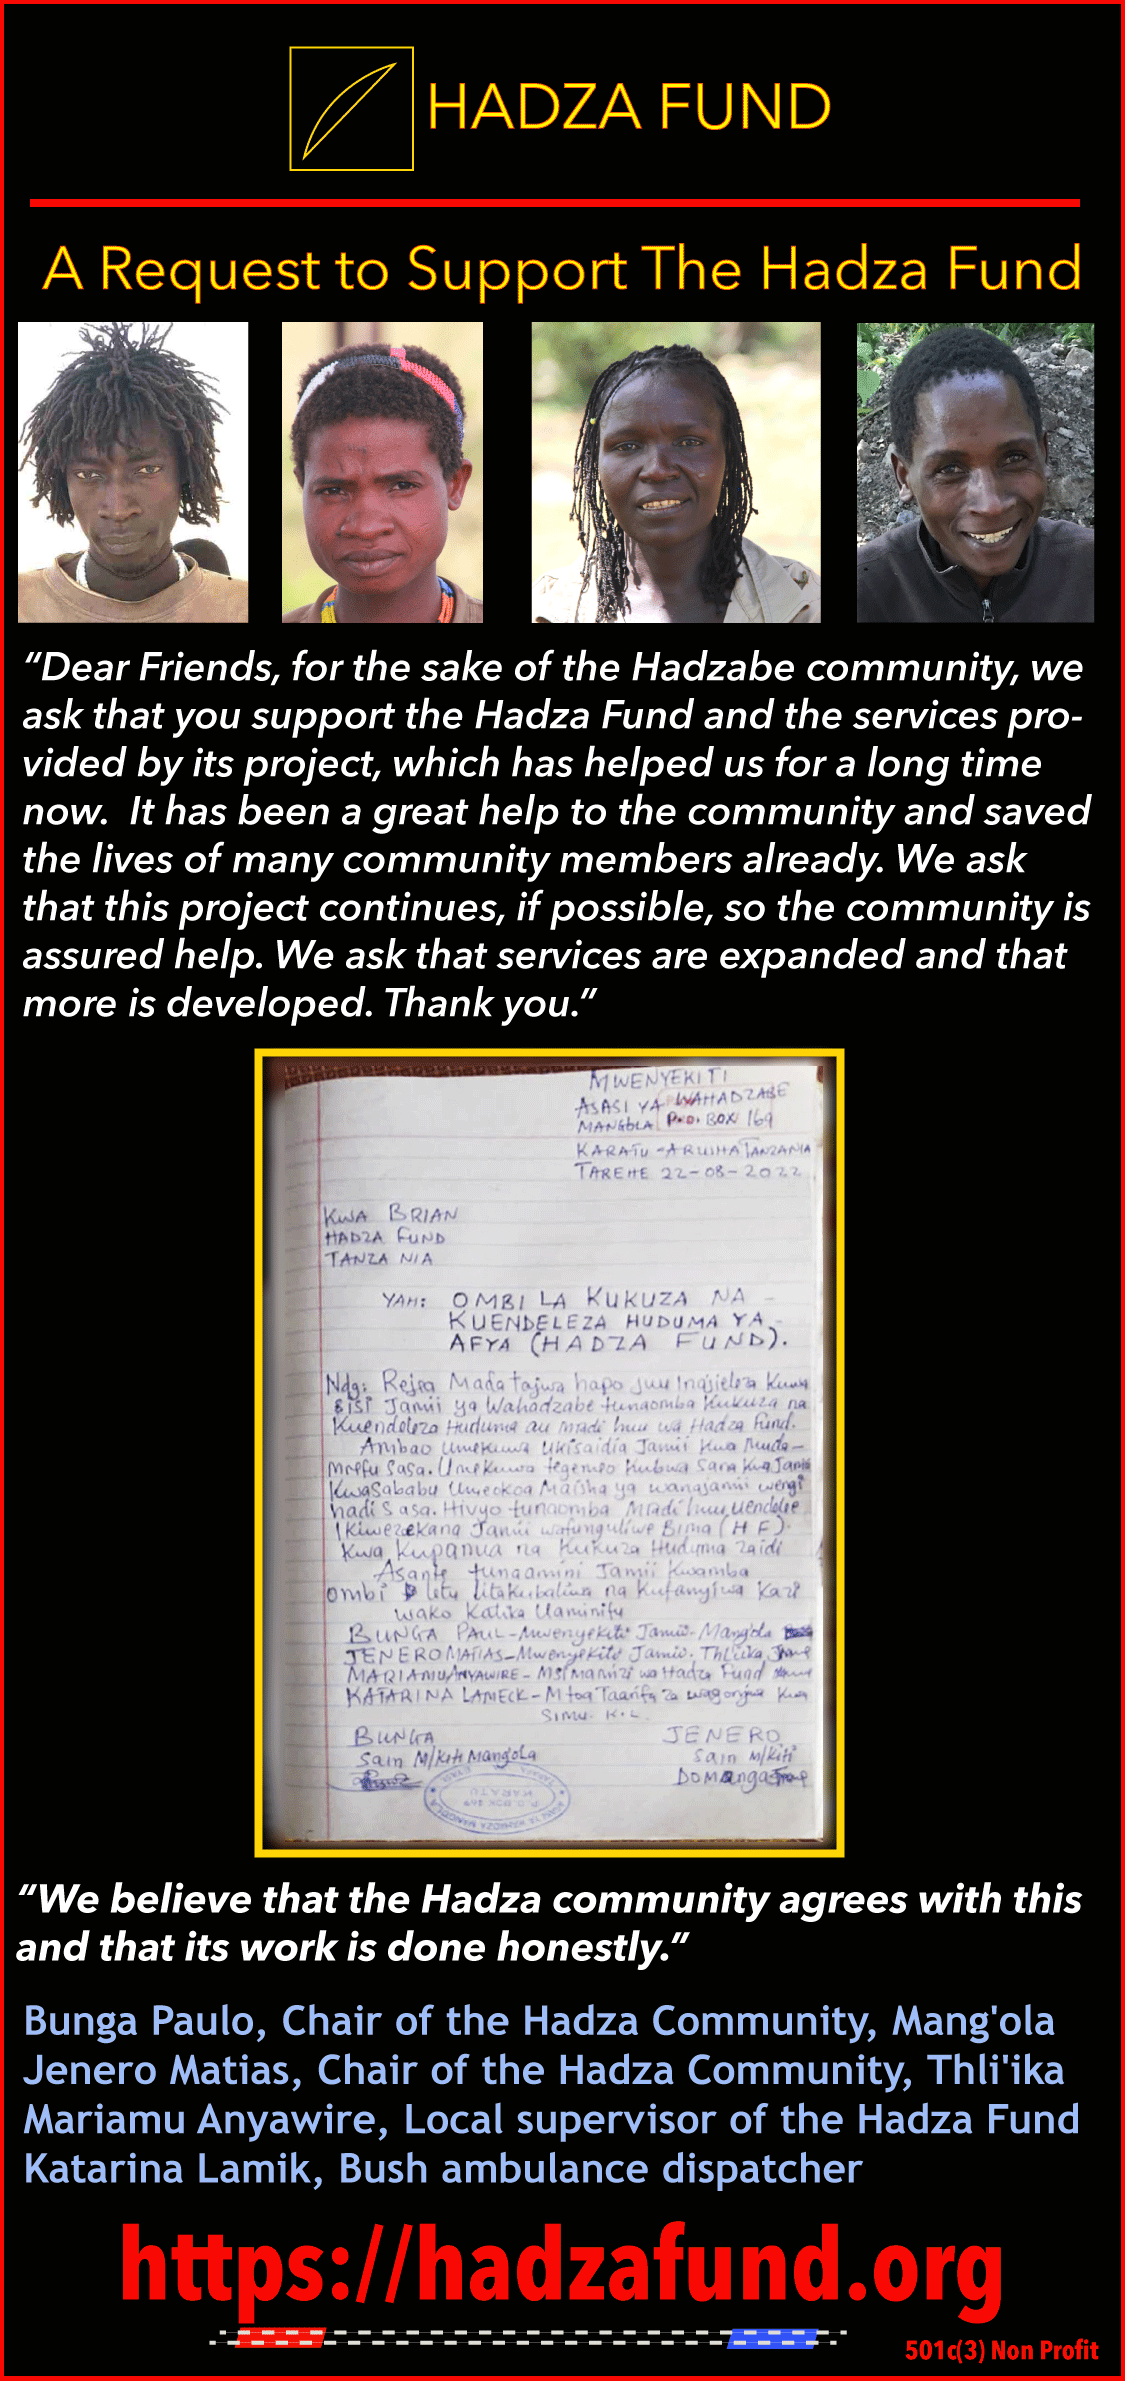 HADZA FUND
A Request to Support The Hadza Fund
“Dear Friends, for the sake of the Hadzabe community, we
ask that you support the Hadza Fund and the services pro-
vided by its project, which has helped us for a long time
now. It has been a great help to the community and saved
the lives of many community members already. We ask
that this project continues, if possible, so the community is
assured help. We ask that services are expanded and that
more is developed. Thank you.”
MWENYEKITI
ASASI YA WAHADZABE
MANGOLA P.O. BOX 169
KARATU - ARUSHA TANZANIA
TAREHE 22-08-2022
KWA BRIAN
HADZA FUND
TANZA NIA
YAH: OMBI LA KUKUZA NA -
KUENDELEZA HUDUMA YA -
AFYA (HADZA FUND).
Ndg: Rejea Mada tajwa hapo juu inajieleza Kuwa
sisi Jamii ya Wahadzabe tunaomba Kukuza na
Kuendeleza Huduma au mradi huu wa Hadza Fund.
Ambao Umekuwa Ukisaidia Jamii Kwa Muda-
mrefu Sasa. Umekuwa tegemeo Kubwa Sana Kwa Jamii
Kwasababu Umeokoa Maisha ya wanajamii wengi
hadi Sasa. Hivyo tunaomba Mradi huu uendelee
Jamii wafunguliwe Bima (H F).
Kwa Kupanua na Kukuza Huduma zaidi
Asante tunaamini Jamii Kwamba
ombi letu litakubaliwa na Kufanyiwa Kazi
wako Katika Uaminifu
BUNGA PAUL - Mwenyekiti Jamii - Mang'ola
JENERO MATIAS - Mwenyekiti Jamii. Thli'ika
MARIAMU ANYAWIRE - Msimamizi wa Hadza Fund
KATARINA LAMECK - Mtoa Taarifa za wagonjwa Kwa
SIMU. K.L.
BUNGA JENERO
Sain M/Kiti Mangola Sain M/Kiti
DOMANGA
P.O. BOX 169
KARATU
“We believe that the Hadza community agrees with this
and that its work is done honestly.”
Bunga Paulo, Chair of the Hadza Community, Mang'ola
Jenero Matias, Chair of the Hadza Community, Thli'ika
Mariamu Anyawire, Local supervisor of the Hadza Fund
Katarina Lamik, Bush ambulance dispatcher
https://hadzafund.org
501c(3) Non Profit